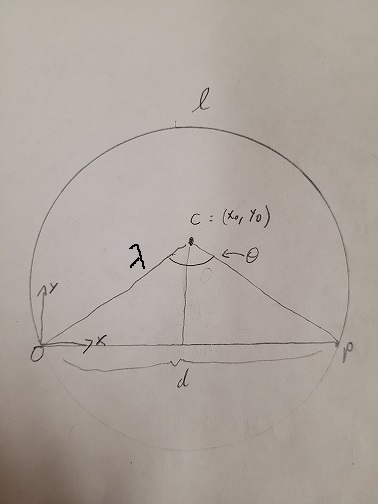 l
C : (x₀, y₀)
λ
θ
Y
X
O
P
d